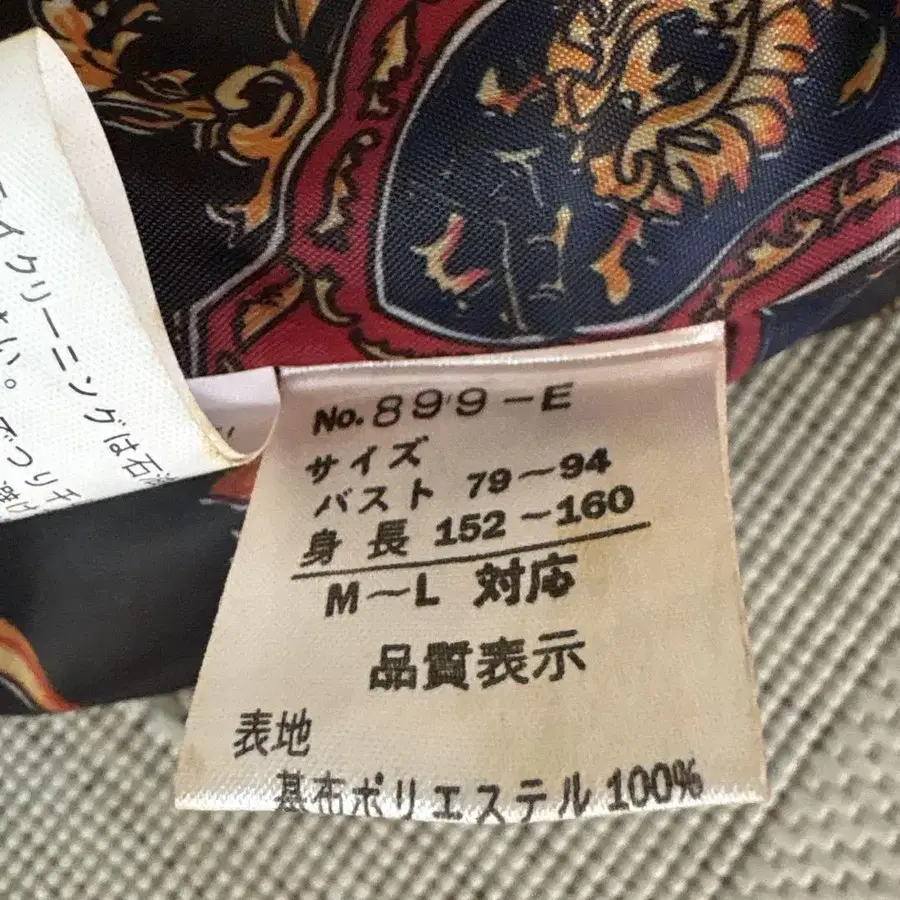 No. 899-E
サイズ
バスト 79〜94
身長 152〜160
M〜L 対応
品質表示
表地
基布ポリエステル 100%
イクリーニングは石
い。